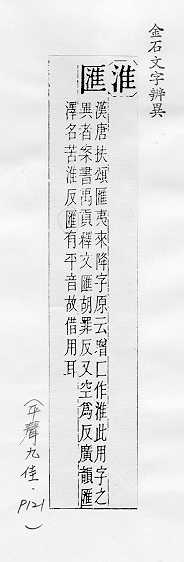 金石文字辨異
淮
匯
漢唐扶頌匯夷來降字原云增匚作淮此用字之
異者案書禹貢釋文匯胡罪反又空為反廣韻匯
澤名苦淮反匯有平音故借用耳
(平聲九佳.P121)